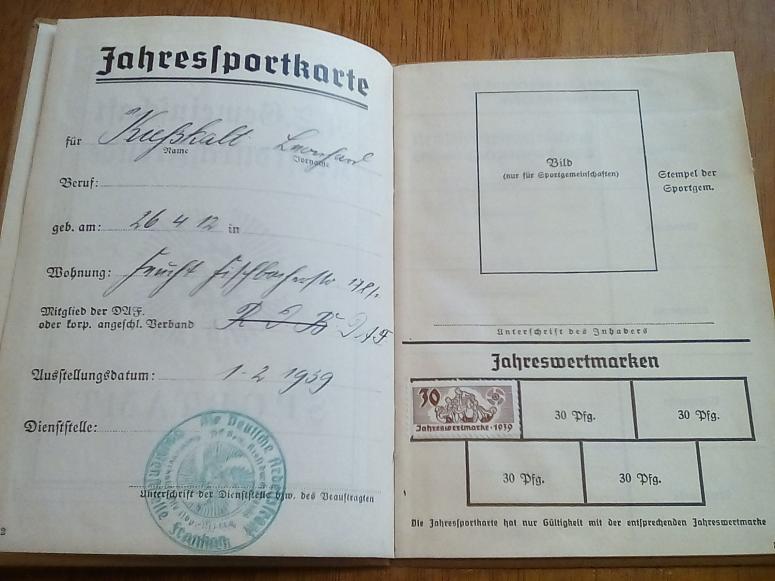 Jahressportkarte
für Kießkalt Leonhard
Name Vorname
Beruf:
geb. am: 26 4 12 in
Wohnung: Feucht Fischbacherstr
Mitglied der DAF.
oder korp. angeschl. Verband R D B DAF
Ausstellungsdatum: 1-2 1939
Dienststelle:
Die Deutsche Arbeitsfront
Franken
Unterschrift der Dienststelle bzw. des Beauftragten
2
Bild
(nur für Sportgemeinschaften)
Stempel der
Sportgem.
Unterschrift des Inhabers
Jahreswertmarken
30
Jahreswertmarke · 1939
30 Pfg. 30 Pfg.
30 Pfg. 30 Pfg.
Die Jahressportkarte hat nur Gültigkeit mit der entsprechenden Jahreswertmarke